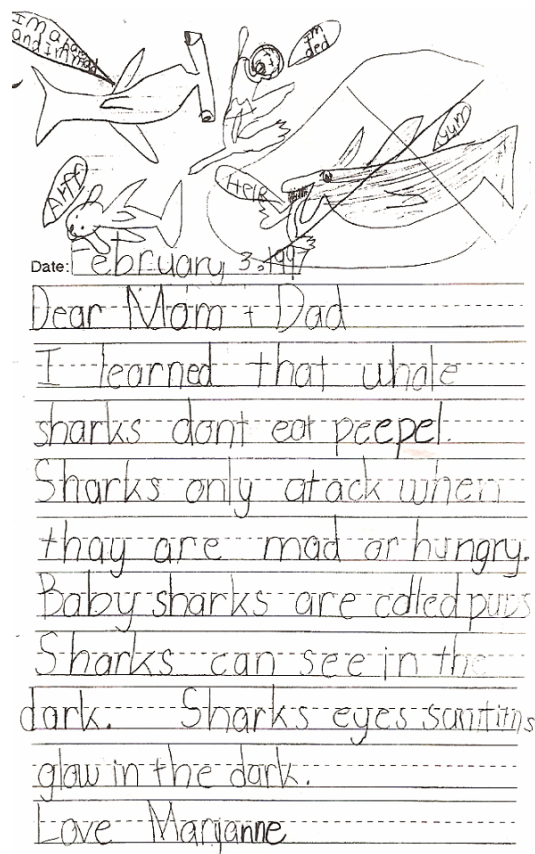 Im a
and Im mad
Im
ded
yum
Arff
Help
Date: February 3, 1997
Dear Mom + Dad
I learned that whale
sharks dont eat peepel.
Sharks only atack when
thay are mad or hungry.
Baby sharks are colled pups
Sharks can see in the
dark. Sharks eyes somtims
glow in the dark.
Love Maryanne